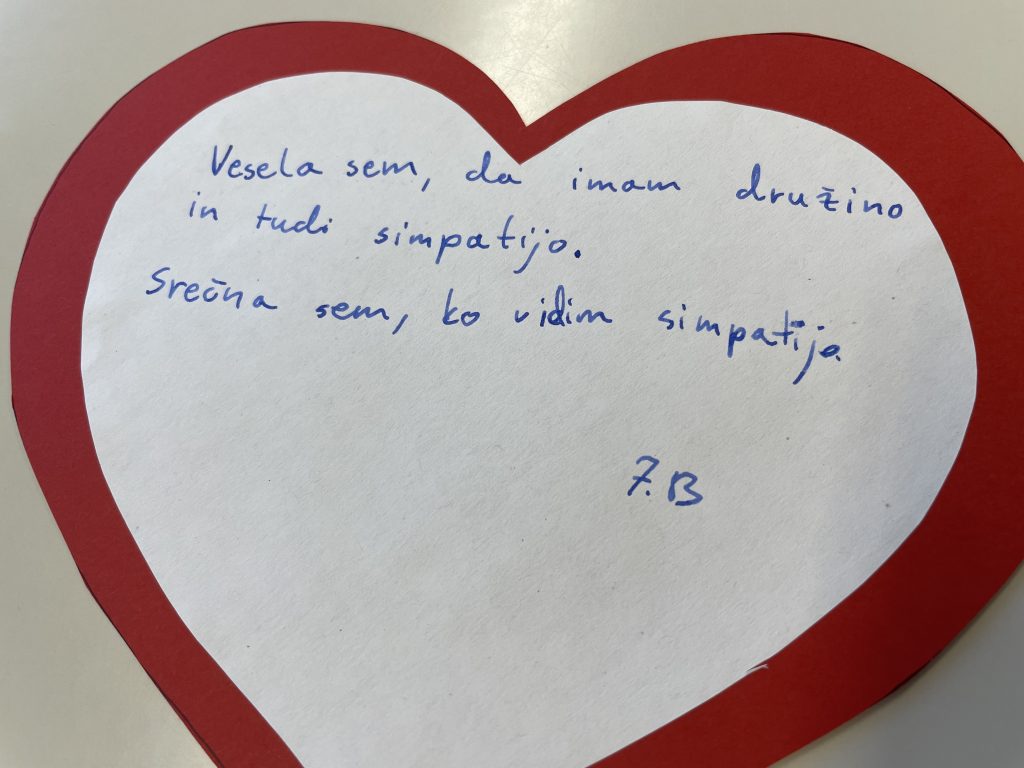 Vesela sem, da imam družino
in tudi simpatijo.
Srečna sem, ko vidim simpatijo.
7.B